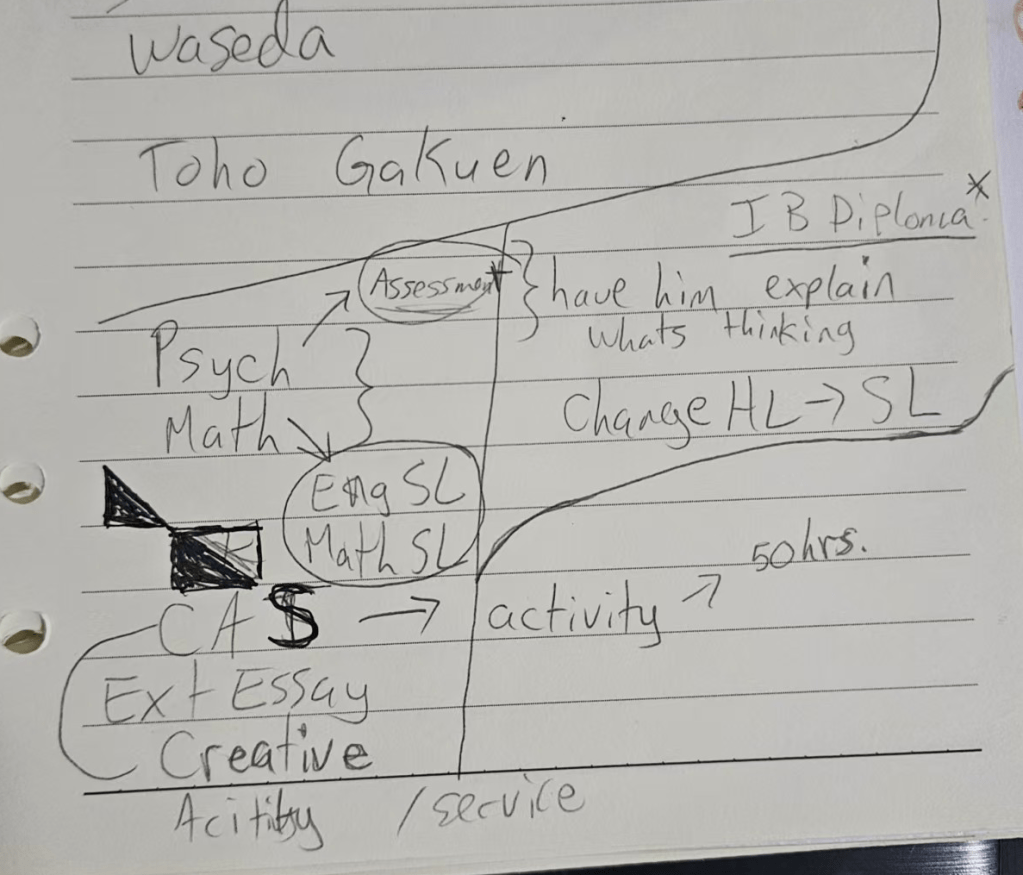 Waseda
Toho Gakuen
IB Diploma*
Assessment } have him explain
whats thinking
Psych
Math
Change HL → SL
Eng SL
Math SL
50 hrs.
CAS → activity ↗
Ext Essay
Creative
Acitity /service